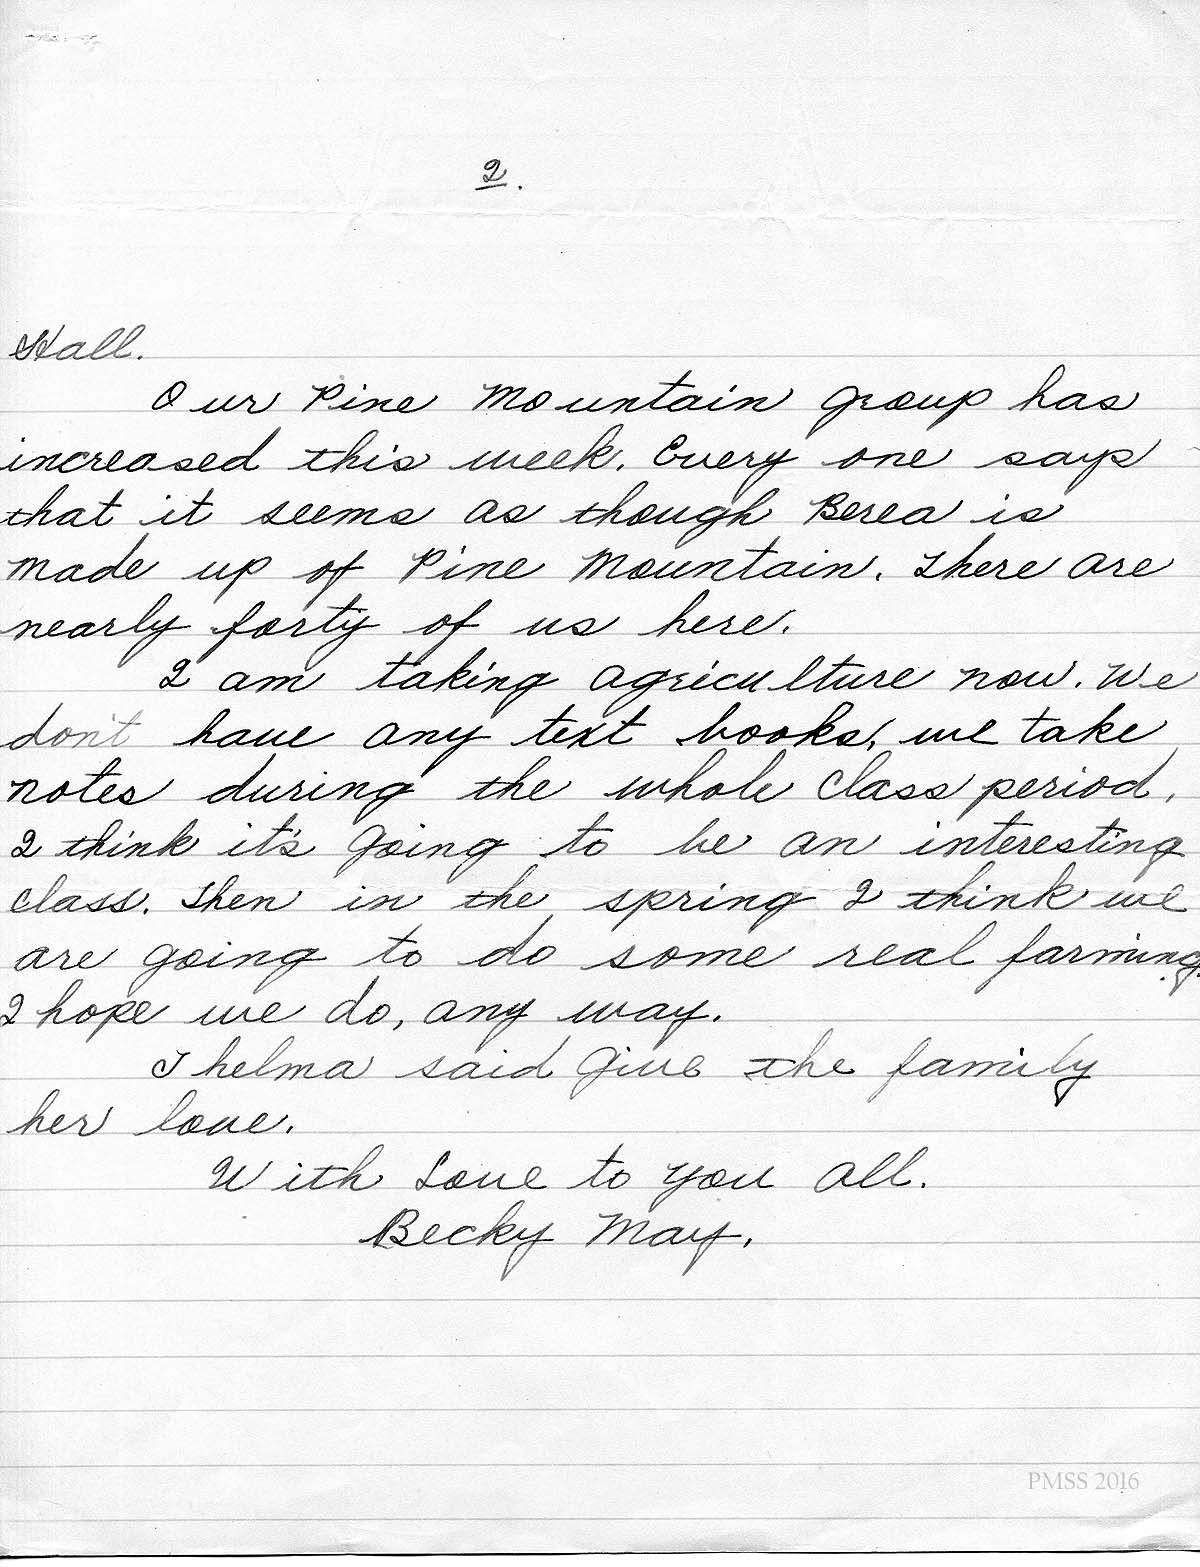 2.
Hall.
Our Pine Mountain group has
increased this week. Every one says
that it seems as though Berea is
made up of Pine Mountain. There are
nearly forty of us here.
I am taking agriculture now. We
don't have any text books, we take
notes during the whole class period.
I think it's going to be an interesting
class. Then in the spring I think we
are going to do some real farming.
I hope we do, any way.
Thelma said give the family
her love.
With Love to you all.
Becky May.
PMSS 2016